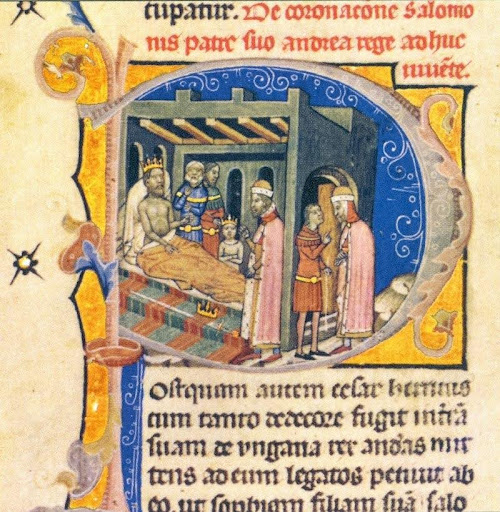 cupatur. De coronacõne Salomo
nis patre suo andrea rege adhuc
uiuẽte.
Ostquam autem cesar henricus
cum tanto dedecore fugit infrã
suam de vngaria rex andas mit
tens ad eum legatos petiuit ab
eo ut sophiam filiam suã salo